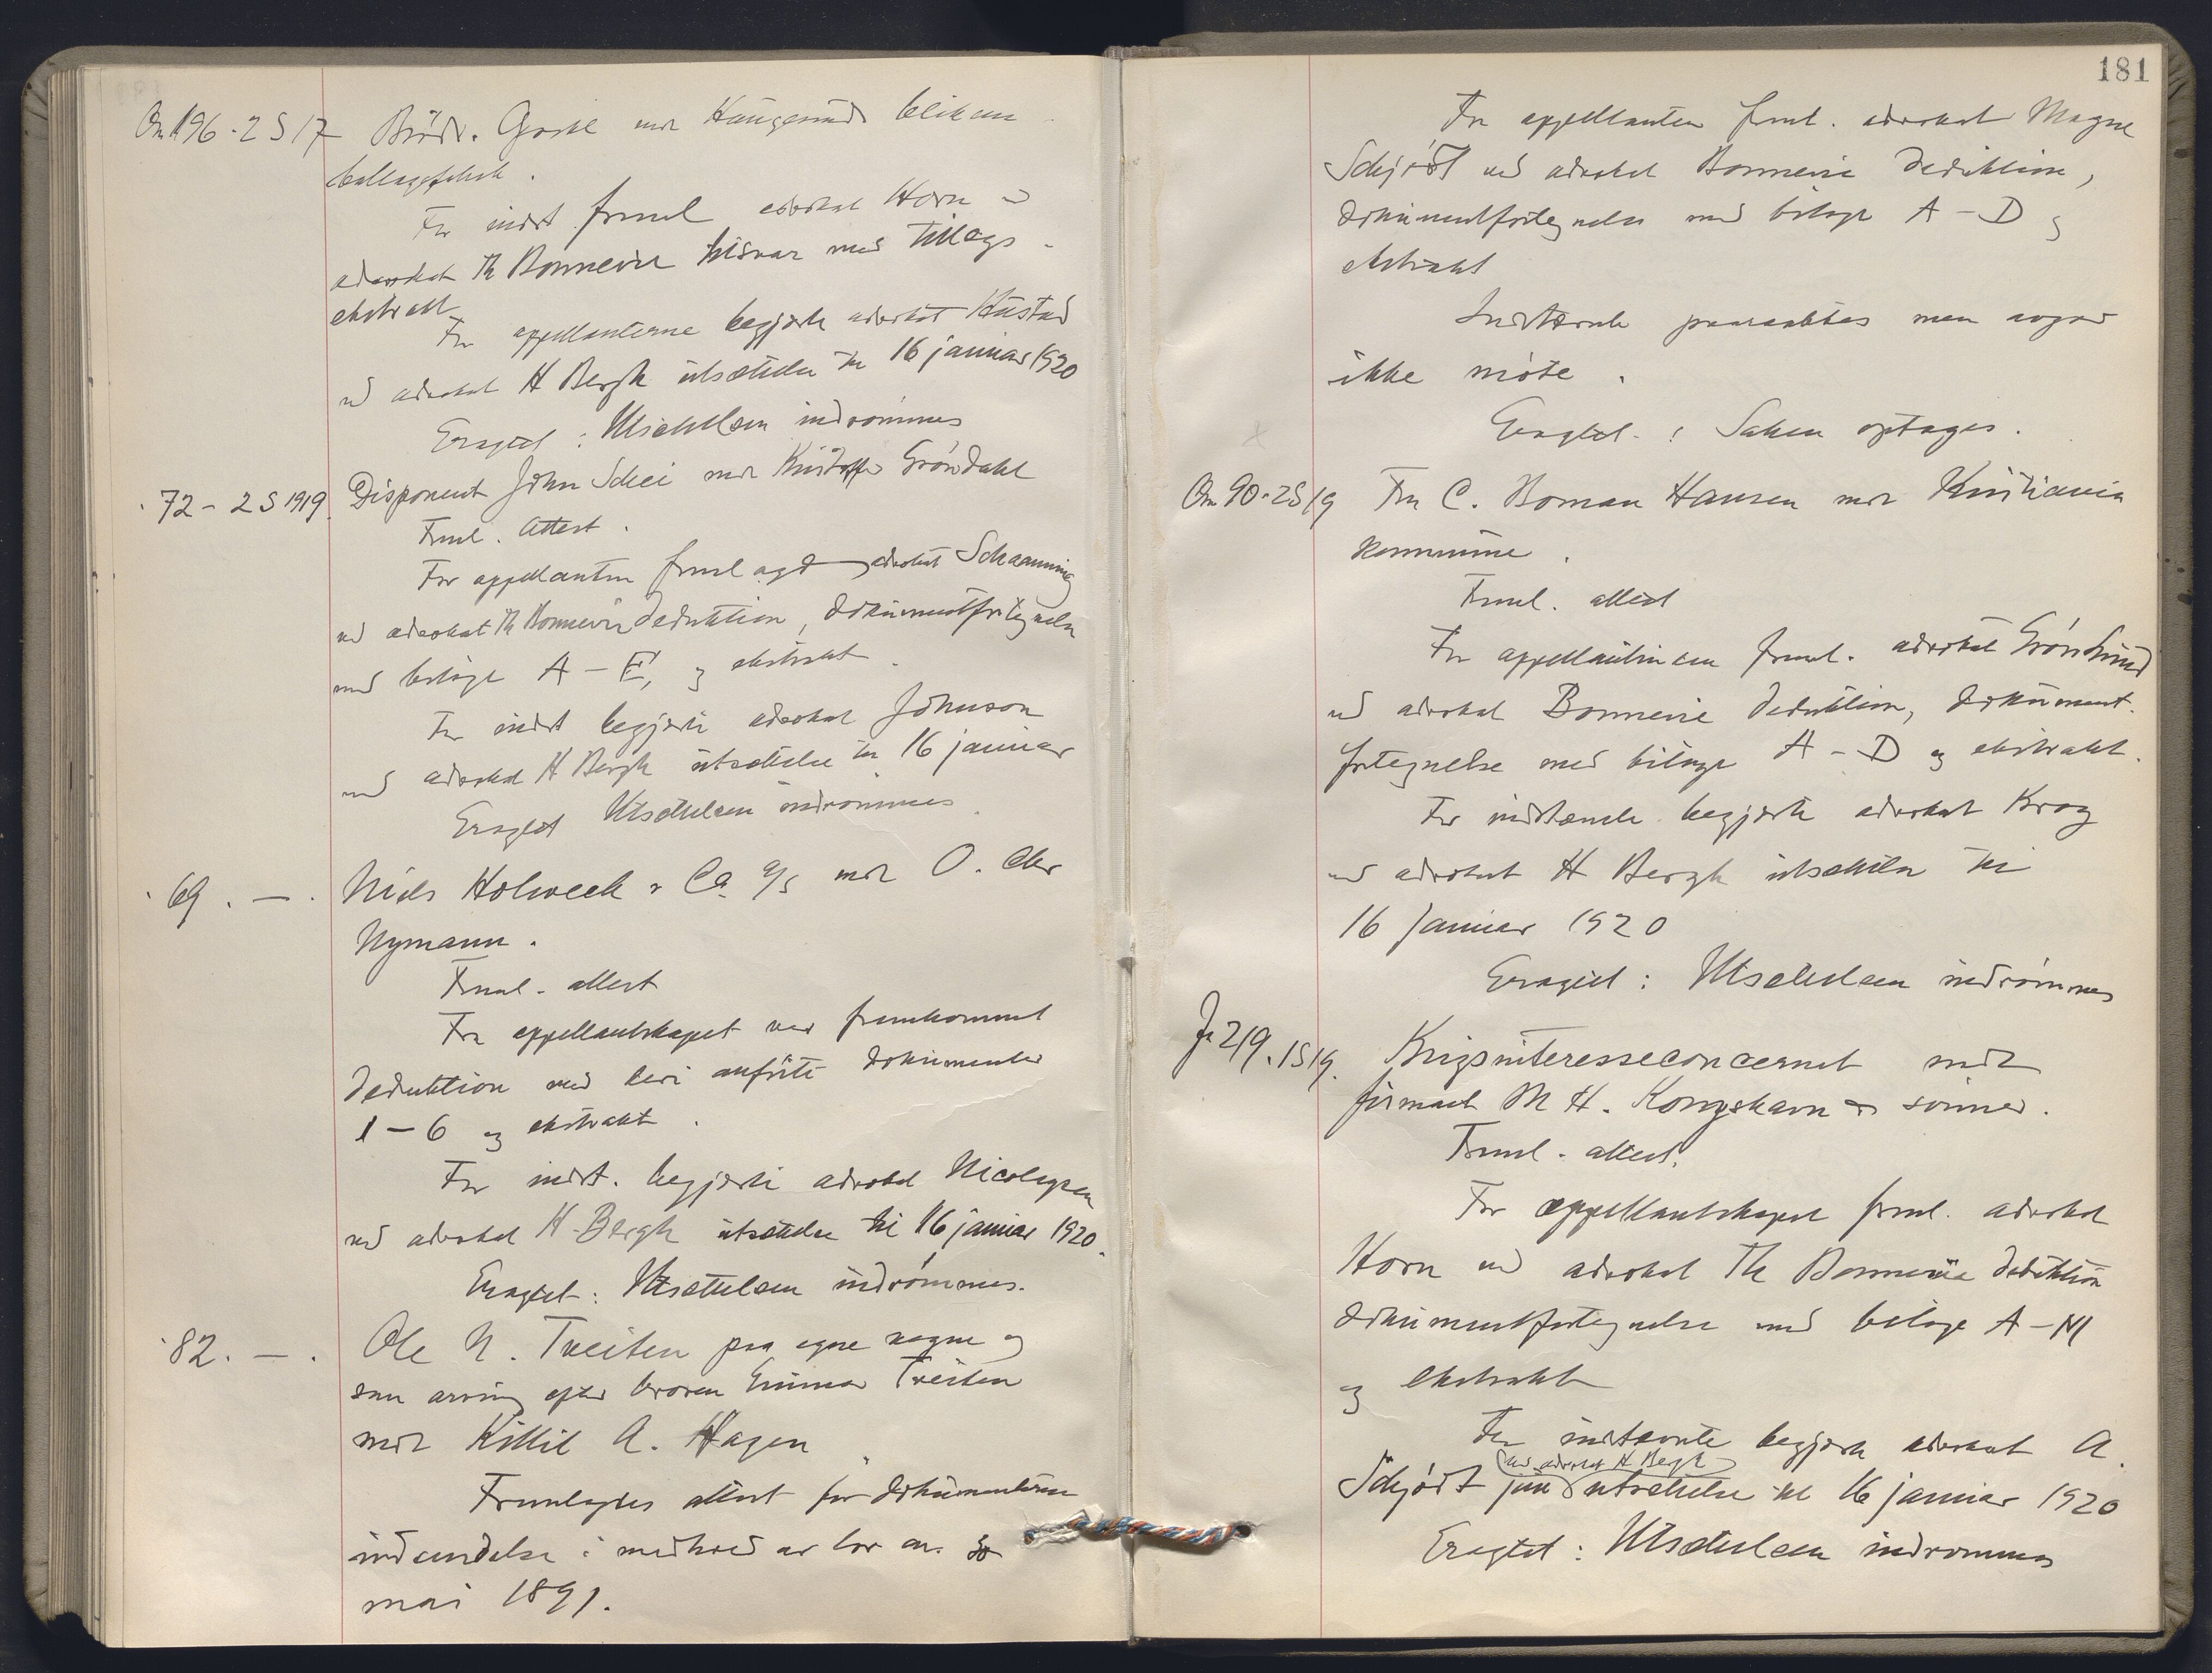 On 196-2 S 17 Brödr. Goske mot Haugesunds blikem-
ballagefabrik.
For indst frml advokat Horn v
advokat Th Bonnevie tilsvar med tillægs-
ekstrakt
For appellanterne begjærte advokat Hustad
ved advokat H Bergh utsættelse til 16 januar 1920
Eragtet: Utsættelsen indrømmes
72-2 S 1919 Disponent John Schei mot Kristoffer Gröndahl
Freml. Attest.
For appellanten fremlagdes advokat Schaanning
ved advokat Th Bonnevie deduktion, dokumentfortegnelse
med bilage A-E, og ekstrakt.
For indst begjærte advokat Johnson
ved advokat H Bergh utsættelse til 16 januar
Eragtet Utsættelsen indrømmes
69.-. Niels Holweck & Co. A/S mot O. Chr
Nymann.
Freml. attest
For appellantskapet var fremkommet
deduktion med deri anførte dokumenter
1-6 og ekstrakt.
For indst. begjærte advokat Nicolaysen
ved advokat H Bergh utsættelse til 16 januar 1920.
Eragtet: Utsættelsen indrømmes.
82.-. Ole N. Treiten paa egne vegne og
som arving efter broren Gunnar Treiten
mot Killil A. Hagen
Fremlagdes attest for dokumenternes
indsendelse i medhold av lov av 30
mai 1891.
181
For appellanten freml. advokat Magne
Schjödt ved advokat Bonnevie deduktion,
dokumentfortegnelse med bilage A-D og
ekstrakt
Indstevnte paaraabtes men avgav
ikke møte.
Eragtet: Saken optages.
On 90-2S19 Fru C. Boman Hansen mot Kristiania
kommune.
Freml. attest
For appellantinden freml. advokat Grönlund
ved advokat Bonnevie deduktion, dokument-
fortegnelse med bilage A-D og ekstrakt.
For indstævnte begjærte advokat Krag
ved advokat H Bergh utsættelse til
16 Januar 1920
Eragtet: Utsættelsen indrømmes
Fr 219.1S19. Krigsinteresseconcernet mot
firmaet M H. Kongshavn & sönner.
Freml. attest.
For appellantskapet freml. advokat
Horn ved advokat Th Bonnevie deduktion
dokumentfortegnelse med bilage A-M
og ekstrakt
For indstevnte begjærte advokat A.
(ved advokat H Bergh)
Schjödt jun utsættelse til 16 januar 1920
Eragtet: Utsættelsen indrømmes